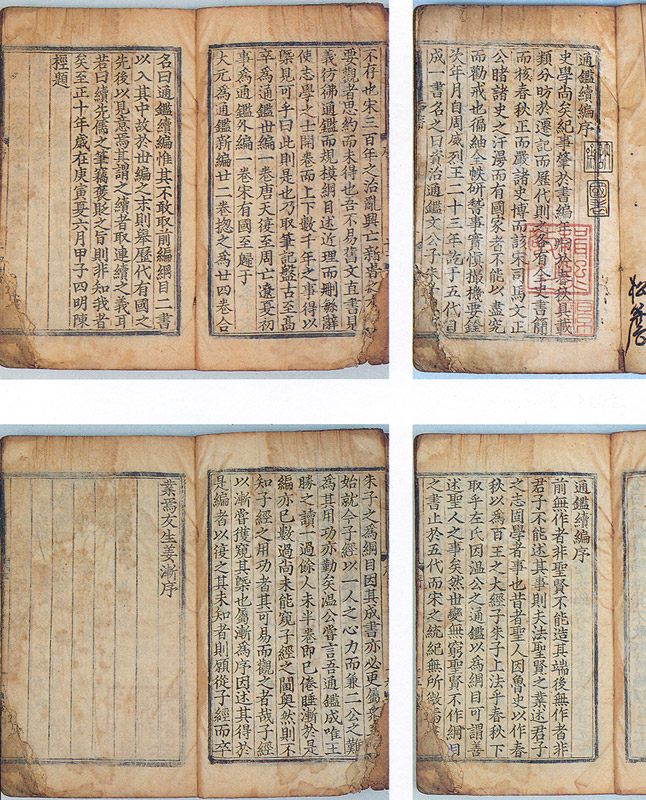 通鑑續編序
史學尚矣紀事肇於書編年昉於春秋具載
類分昉於遷記而歷代則之各有全史書簡
而核春秋正而嚴諸史博而該宋司馬文正
公睹諸史之汗漫而有國家者不能以盡究
而勸戒也徧紬全帙研事實慎撮機要銓
次年月自周威烈王二十三年訖于五代目
成一書名之曰資治通鑑文公子朱子
松
不存也宋三百年之治亂興亡
要觀者思約而未得也吾不易舊文直書見
義彷彿通鑑而規模綱目述近理而刪辭
使志學之士開卷而上下數千年之事得以
槩見可乎曰此則是也乃取筆記盤古至高
辛為通鑑世編一卷唐天復至周亡遼夏初
事為通鑑外編一卷宋有國至歸于
大元為通鑑新編廿二卷揔之為廿四卷合
名曰通鑑續編惟其不敢取前編綱目二書
以入其中故於世編之末則舉歷代有國之
先後以見意焉其謂之續者取連續之義耳
若曰續先儒之筆竊褒貶之旨則非知我者
矣至正十年歲在庚寅夏六月甲子四明陳
桱題
通鑑續編序
前無作者非聖賢不能造其端後無作者非
君子不能述其事則夫法聖賢之業述君子
之志固學者事也昔者聖人因魯史以作春
秋以為百王之大經子朱子上法乎春秋下
取乎左氏因溫公之通鑑以為綱目可謂善
述聖人之事矣然世變無窮聖賢不作綱目
之書止於五代而宋之統紀無所徵
朱子之為綱目因其成書亦必更屬
始就今子經以一人之心力而兼二公之難
為其用功亦勤矣溫公嘗言吾通鑑成唯王
勝之讀一過餘人未半卷即已倦睡漸於是
編亦已數過尚未能窺子經之閫奧然則不
知子經之用功者其可易而觀之者哉子經
以漸嘗獲窺其槩也屬漸為序因述其得於
是編者以復之其未知者則願從子經而卒
業焉友生姜漸序